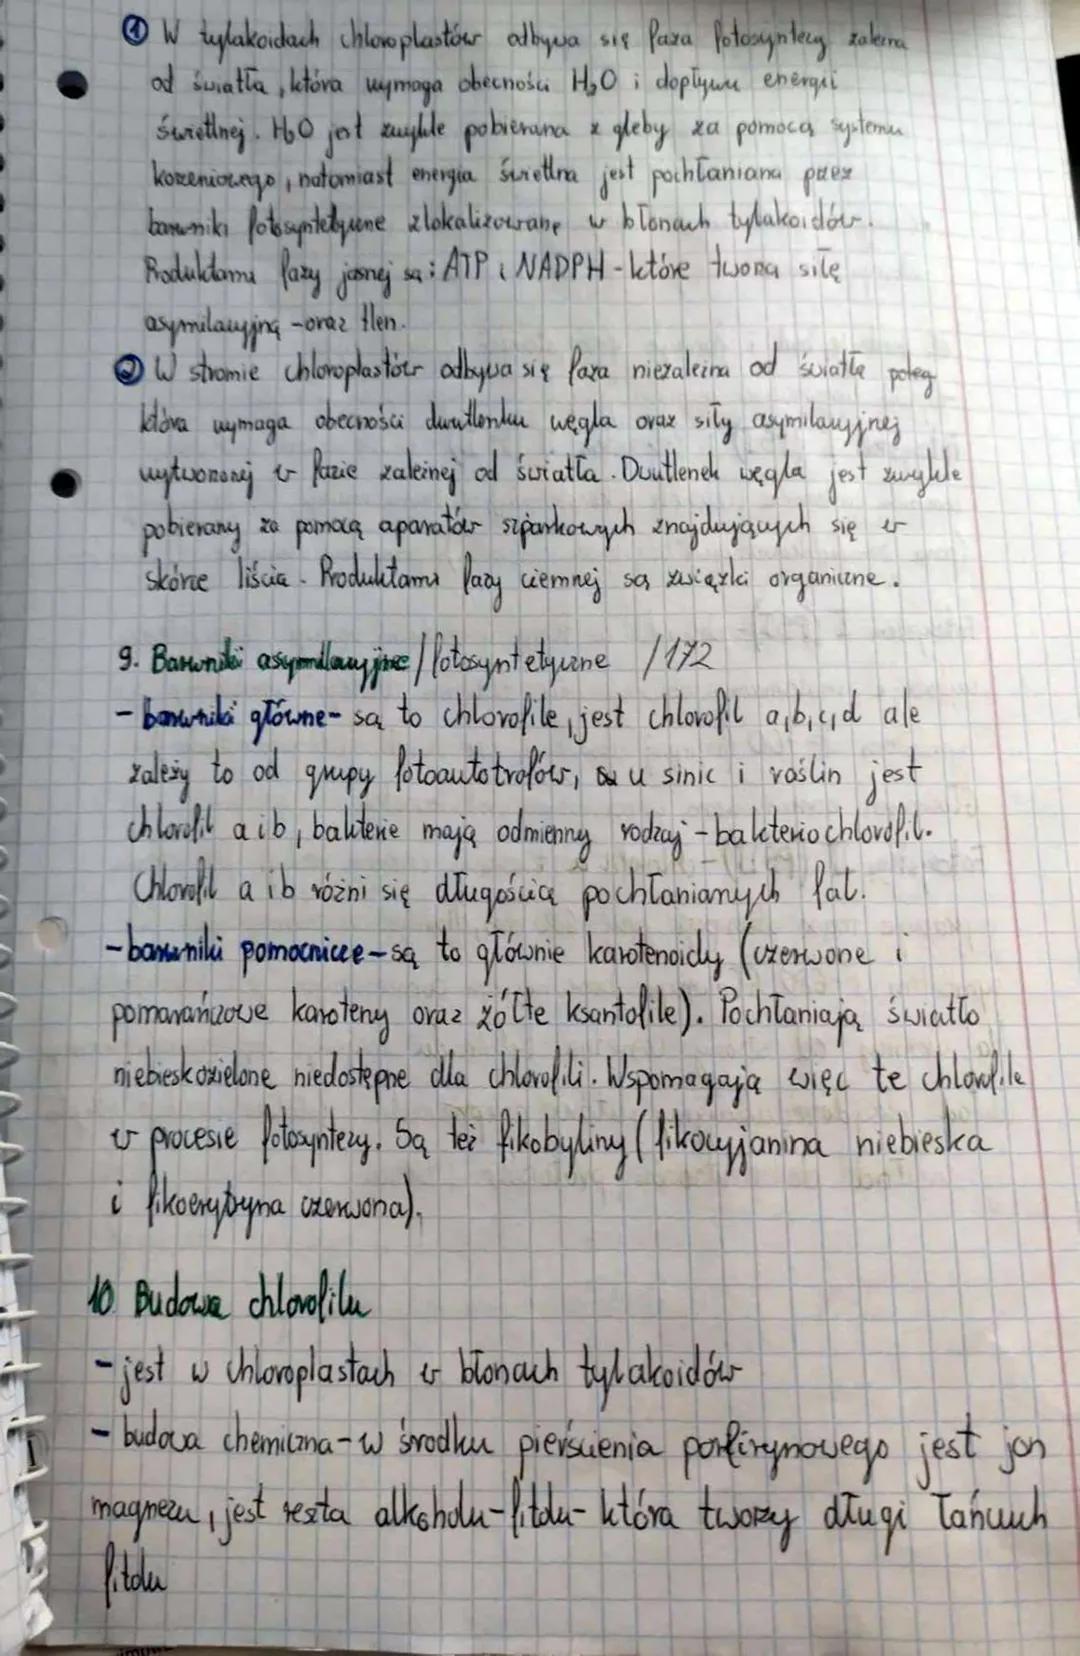 ① W tylakoidach chloroplastów odbywa się faza fotosyntezy zależna
od światła, która wymaga obecności H₂O i dopływu energii
świetlnej. H₂O jest zwykle pobierana z gleby za pomocą systemu
korzeniowego, natomiast energia świetlna jest pochłaniana przez
barwniki fotosyntetyczne zlokalizowane w błonach tylakoidów.
Produktami fazy jasnej są: ATP i NADPH - które tworzą siłę
asymilacyjną - oraz tlen.
② W stromie chloroplastów odbywa się faza niezależna od światła
która wymaga obecności dwutlenku węgla oraz siły asymilacyjnej
wytworzonej w fazie zależnej od światła. Dwutlenek węgla jest zwykle
pobierany za pomocą aparatów szparkowych znajdujących się w
skórce liścia. Produktami fazy ciemnej są związki organiczne.
9. Barwniki asymilacyjne / fotosyntetyczne /172
- barwniki główne - są to chlorofile, jest chlorofil a,b,c,d ale
zależy to od grupy fotoautotrofów, u sinic i roślin jest
chlorofil a i b, bakterie mają odmienny rodzaj - bakteriochlorofil.
Chlorofil a i b różni się długością pochłanianych fal.
- barwniki pomocnicze - są to głównie karotenoidy (czerwone i
pomarańczowe karoteny oraz żółte ksantofile). Pochłaniają światło
niebieskozielone niedostępne dla chlorofili. Wspomagają więc te chlorofile
w procesie fotosyntezy. Są też fikobyliny (fikocyjanina niebieska
i fikoerytryna czerwona).
10. Budowa chlorofilu
- jest w chloroplastach w błonach tylakoidów
- budowa chemiczna - w środku pierścienia porfirynowego jest jon
magnezu, jest reszta alkoholu - fitolu - która tworzy długi łańcuch
fitolu